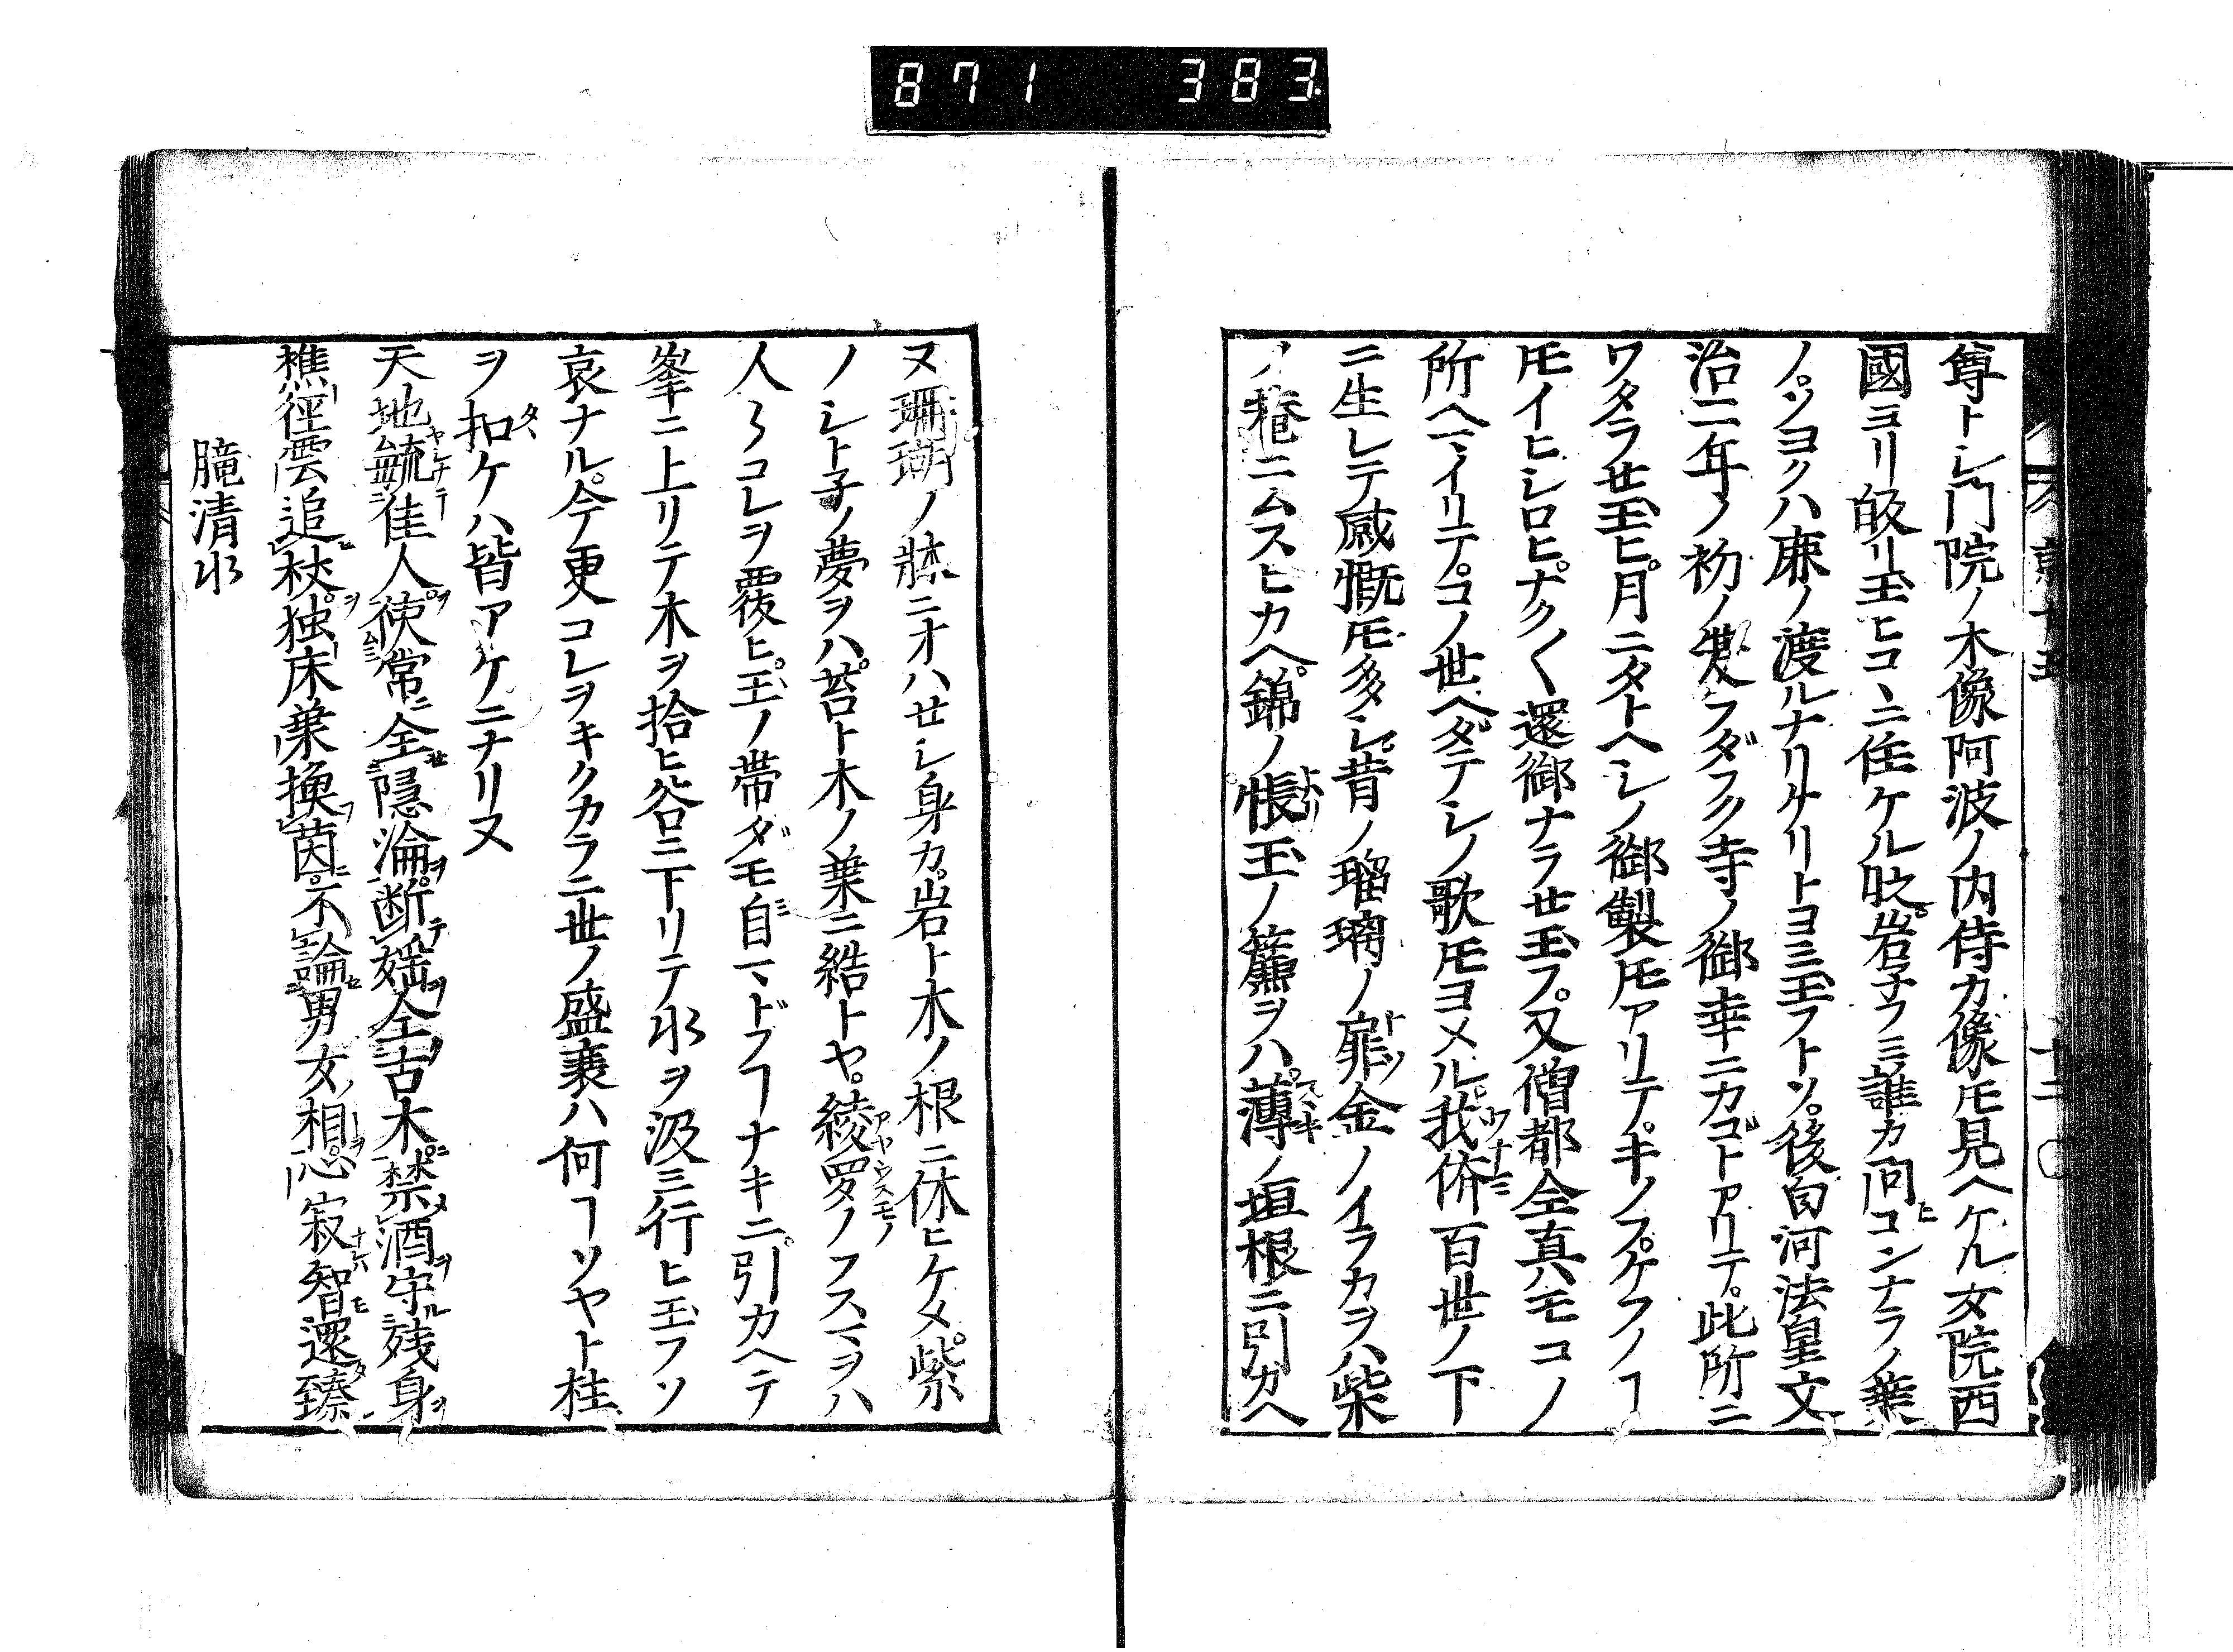 871 383
尊トシ門院ノ木像阿波ノ内侍カ像モ見ヘケル女院西
國ヨリ皈リ玉ヒコヽニ住ケル比岩子フミ誰カ問コンナラノ葉
ノソヨクハ鹿ノ渡ルナリケリトヨミ玉フトソ後白河法皇文
治二年ノ初ノ夏フダフク寺ノ御幸ニカゴトアリテ此所ニ
ワタラセ玉ヒ月ニタトヘシノ御製モアリテキノフケフノヿ
トモイヒシロヒナク〱還御ナラセ玉フ又僧都全真ハモコノ
所ヘマイリテコノ世ヘダテシノ歌トモヨメル我儕百世ノ下
ニ生レテ感慨トモ多シ昔ノ瑠璃ノ扉金ノイラカヲハ柴
ノ菴ニムスヒカヘ錦ノ帳玉ノ簾ヲハ薄ノ垣根ニ引カヘ
ヌ珊瑚ノ牀ニオハセシ身カ岩ト木ノ根ニ休ヒケメ紫
ノシト子ノ夢ヲハ苔ト木ノ葉ニ結トヤ綾羅ノフスマヲハ
人〻コレヲ覆ヒ玉ノ帯ダモ自マドフヿナキニ引カヘテ
峯ニ上リテ木ヲ拾ヒ谷ニ下リテ水ヲ汲ミ行ヒ玉フソ
哀ナル今更コレヲキクカラニ世ノ盛衰ハ何ヿソヤト柱
ヲ扣ケハ皆アケニナリヌ
天地毓佳人使常全隠淪断婬全古木禁酒守残身
樵径雲追杖独床葉換茵不論男女相心寂智還臻
朧清水